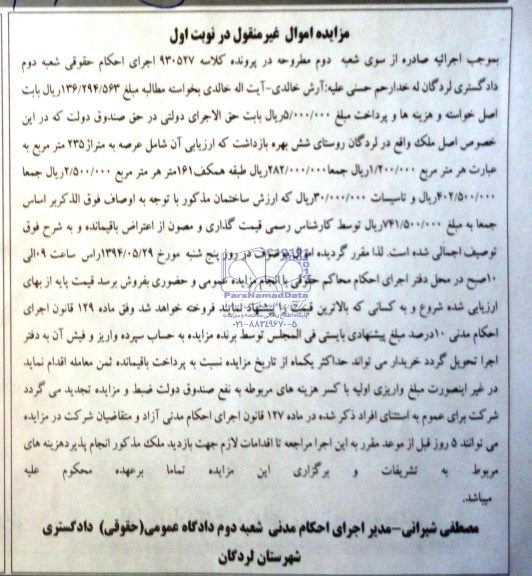 مزایده اموال غیرمنقول در نوبت اول
بموجب اجرائیه صادره از سوی شعبه دوم مطروحه در پرونده کلاسه ۹۳۰۵۲۷ اجرای احکام حقوقی شعبه دوم
دادگستری لردگان له خدارحم حسنی علیه:آرش خالدی-آیت اله خالدی بخواسته مطالبه مبلغ ۱۳۶/۲۹۴/۵۶۳ریال بابت
اصل خواسته و هزینه ها و پرداخت مبلغ ۵/۰۰۰/۰۰۰ریال بابت حق الاجرای دولتی در حق صندوق دولت که در این
خصوص اصل ملک واقع در لردگان روستای شش بهره بازداشت که ارزیابی آن شامل عرصه به متراژ۲۳۵ متر مربع به
عبارت هر متر مربع ۱/۲۰۰/۰۰۰ریال جمعا۲۸۲/۰۰۰/۰۰۰ریال طبقه همکف۱۶۱متر هر متر مربع ۲/۵۰۰/۰۰۰ریال جمعا
۴۰۲/۵۰۰/۰۰۰ریال و تاسیسات ۳۰/۰۰۰/۰۰۰ریال که ارزش ساختمان مذکور با توجه به اوصاف فوق الذکربر اساس
جمعا به مبلغ ۷۴۱/۵۰۰/۰۰۰ریال توسط کارشناس رسمی قیمت گذاری و مصون از اعتراض باقیمانده و به شرح فوق
توصیف اجمالی شده است. لذا مقرر گردیده اموال موصوف در روز پنج شنبه مورخ ۱۳۹۴/۰۵/۲۹راس ساعت ۰۹الی
۱۰صبح در محل دفتر اجرای احکام محاکم حقوقی با انجام مزایده عمومی و حضوری بفروش برسد قیمت پایه از بهای
ارزیابی شده شروع و به کسانی که بالاترین قیمت را پیشنهاد نمایند فروخته خواهد شد وفق ماده ۱۲۹ قانون اجرای
احکام مدنی ۱۰درصد مبلغ پیشنهادی بایستی فی المجلس توسط برنده مزایده به حساب سپرده واریز و فیش آن به دفتر
اجرا تحویل گردد خریدار می تواند حداکثر یکماه از تاریخ مزایده نسبت به پرداخت باقیمانده ثمن معامله اقدام نماید
در غیر اینصورت مبلغ واریزی اولیه با کسر هزینه های مربوطه به نفع صندوق دولت ضبط و مزایده تجدید می گردد
شرکت برای عموم به استثنای افراد ذکر شده در ماده ۱۲۷ قانون اجرای احکام مدنی آزاد و متقاضیان شرکت در مزایده
می توانند ۵ روز قبل از موعد مقرر به این اجرا مراجعه تا اقدامات لازم جهت بازدید ملک مذکور انجام پذیردهزینه های
مربوط به تشریفات و برگزاری این مزایده تماما برعهده محکوم علیه
میباشد.
مصطفی شیرانی-مدیر اجرای احکام مدنی شعبه دوم دادگاه عمومی(حقوقی) دادگستری
شهرستان لردگان
ParsNamadData
۰۲۱-۸۸۳۴۹۶۷۰-۵